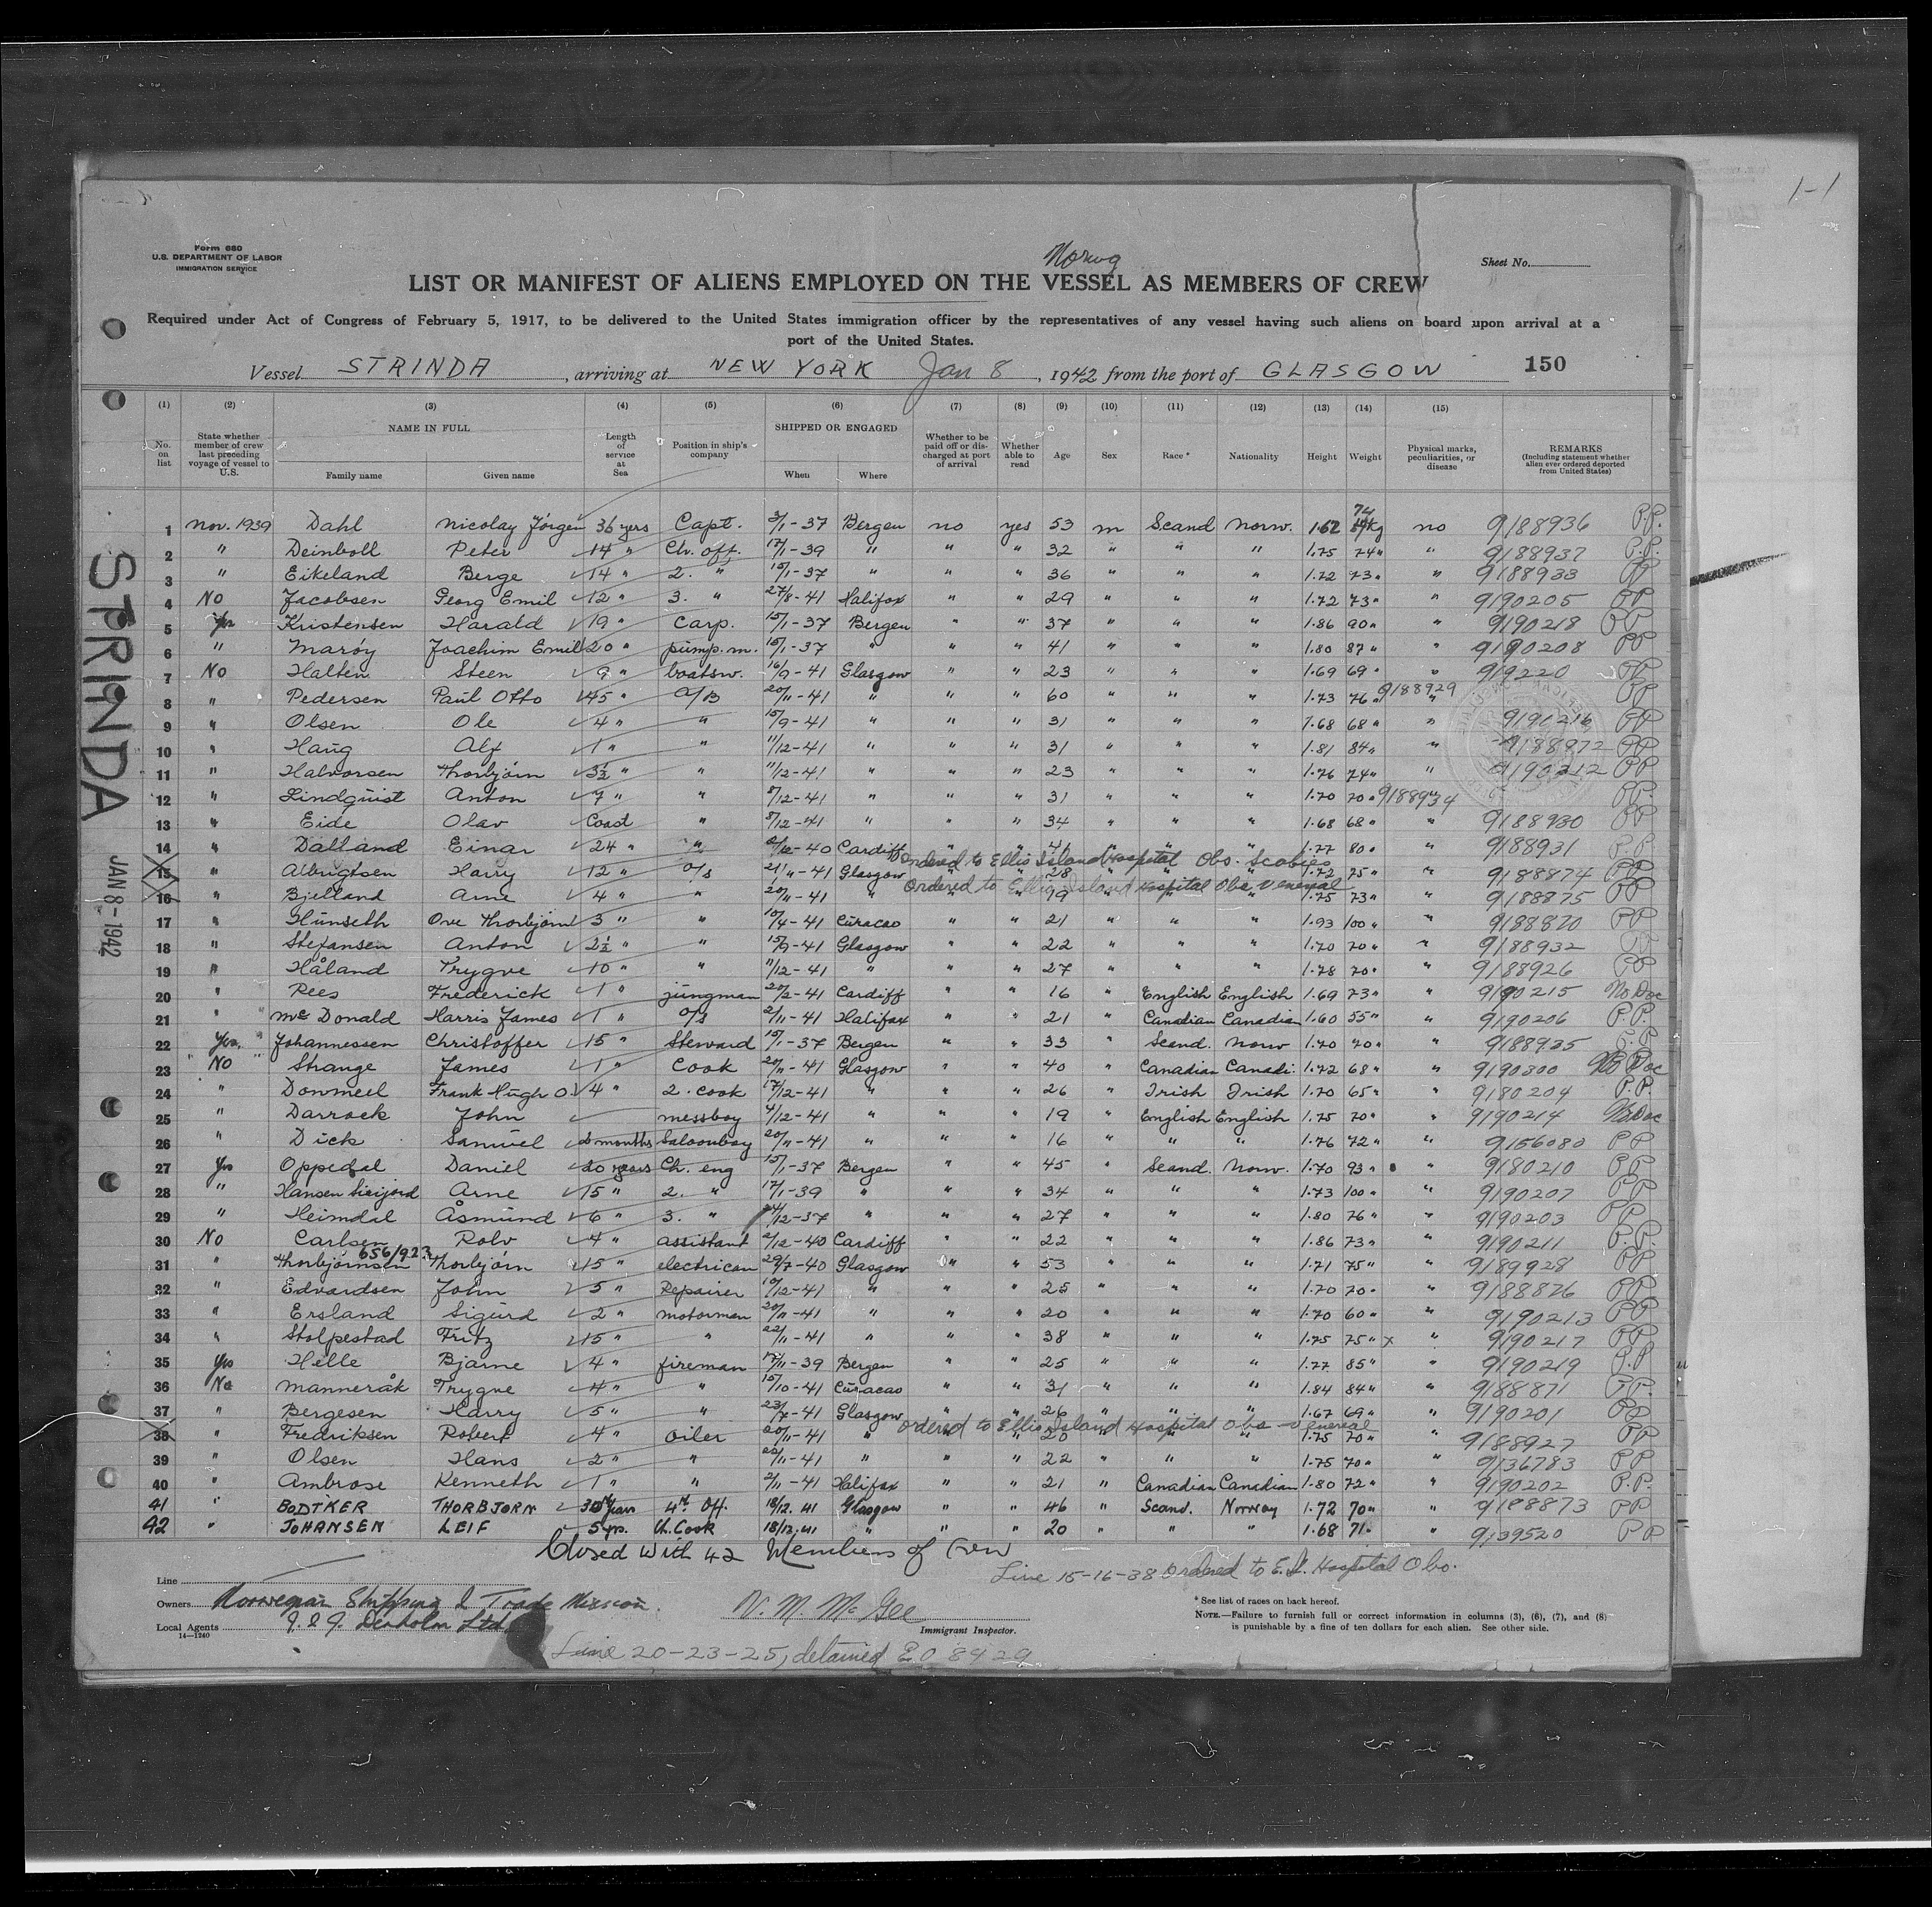 1-1
Form 680
U.S. DEPARTMENT OF LABOR
IMMIGRATION SERVICE
Norwg
Sheet No.
LIST OR MANIFEST OF ALIENS EMPLOYED ON THE VESSEL AS MEMBERS OF CREW
Required under Act of Congress of February 5, 1917, to be delivered to the United States immigration officer by the representatives of any vessel having such aliens on board upon arrival at a
port of the United States.
Vessel STRINDA, arriving at NEW YORK Jan 8, 1942 from the port of GLASGOW 150
(1) (2) (3) (4) (5) (6) (7) (8) (9) (10) (11) (12) (13) (14) (15)
No. on list State whether member of crew last preceding voyage of vessel to U.S. NAME IN FULL Family name Given name Length of service at Sea Position in ship's company SHIPPED OR ENGAGED When Where Whether to be paid off or discharged at port of arrival Whether able to read Age Sex Race * Nationality Height Weight Physical marks, peculiarities, or disease REMARKS (Including statement whether alien ever ordered deported from United States)
1 Nov. 1939 Dahl Nicolay Jörgen 36 yers Capt. 3/1-37 Bergen no yes 53 m Scand Norw. 1.62 74 kg no 9188936 P.P.
2 " Deinboll Peter 14 " Ch. off. 17/1-39 " " " 32 " " " 1.75 74 " " 9188937 P.P.
3 " Eikeland Berge 14 " 2. " 15/1-37 " " " 36 " " " 1.72 73 " " 9188933 PP
4 No Jacobsen Georg Emil 12 " 3. " 27/8-41 Halifax " " 29 " " " 1.72 73 " " 9190205 PP
5 Yes Kristensen Harald 19 " Carp. 15/1-37 Bergen " " 37 " " " 1.86 90 " " 9190218 PP
6 " Maröy Joachim Emil 20 " pump.m. 15/1-37 " " " 41 " " " 1.80 87 " " 9190208 PP
7 No Halten Steen 9 " boatsw. 16/9-41 Glasgow " " 23 " " " 1.69 69 " " 919220 PP
8 " Pedersen Paul Otto 45 " a/B 20/11-41 " " " 60 " " " 1.73 76 " 9188929 " PP
9 " Olsen Ole 4 " " 15/9-41 " " " 31 " " " 1.68 68 " " 9190216 PP
10 " Haug Alf 1 " " 11/12-41 " " " 31 " " " 1.81 84 " " 9188972 PP
11 " Halvorsen Thorbjörn 3½ " " 11/12-41 " " " 23 " " " 1.76 74 " " 9190212 PP
12 " Lindquist Anton 7 " " 8/12-41 " " " 31 " " " 1.70 70 " 9188934 PP.
13 " Eide Olav Coast " 8/12-41 " " " 34 " " " 1.68 68 " " 9188930 PP
14 " Dalland Einar 24 " " 2/12-40 Cardiff " " 41 " " " 1.77 80 " " 9188931 P.P.
Ordered to Ellis Island Hospital Obs. Scabies
15 " Albrigtsen Harry 12 " o/s 21/11-41 Glasgow " " 28 " " " 1.72 75 " " 9188874 PP
Ordered to Ellis Island Hospital Obs Venereal
16 " Bjelland Arne 4 " " 20/11-41 " " " 19 " " " 1.75 73 " " 9188875 PP
17 " Hunseth Ove Thorbjörn 3 " " 10/4-41 Curacao " " 21 " " " 1.93 100 " " 9188870 PP
18 " Stefansen Anton 2½ " " 15/9-41 Glasgow " " 22 " " " 1.70 70 " " 9188932 PP
19 " Håland Trygve 10 " " 11/12-41 " " " 27 " " " 1.78 70 " " 9188926 PP
20 " Rees Frederick 1 " jungman 20/2-41 Cardiff " " 16 " English English 1.69 73 " " 9190215 No Doc
21 " Mc Donald Harris James 1 " o/s 2/11-41 Halifax " " 21 " Canadian Canadian 1.60 55 " " 9190206 P.P.
22 Yes. " Johannessen Christoffer 15 " Steward 15/1-37 Bergen " " 33 " Scand. Norw 1.70 70 " " 9188935 P.P
23 " No Strange James 1 " Cook 20/11-41 Glasgow " " 40 " Canadian Canadi. 1.72 68 " " 9190300 No Doc
24 " Donneel Frank Hugh O. 4 " 2. cook 17/12-41 " " " 26 " Irish Irish 1.70 65 " " 9180204 P.P.
25 " Darrock John messboy 4/12-41 " " " 19 " English English 1.75 70 " " 9190214 No Doc
26 " Dick Samuel months Saloonboy 20/11-41 " " " 16 " " " 1.76 72 " " 9156080 PP
27 Yes Oppedal Daniel 20 years Ch. eng 15/1-37 Bergen " " 45 " Scand. Norw. 1.70 93 " " 9180210 PP
28 " Hansen Arne 15 " 2. " 17/1-39 " " " 34 " " " 1.73 100 " " 9190207 PP
29 " Heimdal Åsmund 6 " 3. " 14/12-37 " " " 27 " " " 1.80 76 " " 9190203 PP
30 No Carlsen Rolv 4 " assistant 2/12-40 Cardiff " " 22 " " " 1.86 73 " " 9190211 P.P.
656/923
31 " Thorbjörnsen Thorbjörn 15 " electrican 29/7-40 Glasgow " " 53 " " " 1.71 75 " " 9189928 PP
32 " Edvardsen John 5 " Repairer 10/12-41 " " " 25 " " " 1.70 70 " " 9188876 PP
33 " Ersland Sigurd 2 " motorman 20/11-41 " " " 20 " " " 1.70 60 " " 9190213 PP
34 " Stolpestad Fritz 15 " " 22/11-41 " " " 38 " " " 1.75 75 " x " 9190217 PP
35 Yes Helle Bjarne 4 " fireman 17/11-39 Bergen " " 25 " " " 1.77 85 " " 9190219 P.P
36 No Manneråk Trygve 4 " " 15/10-41 Curacao " " 31 " " " 1.84 84 " " 9188871 P.P.
37 " Bergesen Harry 5 " " 23/7-41 Glasgow " " 26 " " " 1.67 69 " " 9190201 PP
Ordered to Ellis Island Hospital Obs - Venereal
38 " Fredriksen Robert 4 " oiler 20/11-41 " " " 20 " " " 1.75 70 " " 9188927 PP
39 " Olsen Hans 2 " " 20/11-41 " " " 22 " " " 1.75 70 " " 9136783 PP
40 " Ambrose Kenneth 1 " " 2/11-41 Halifax " " 21 " Canadian Canadian 1.80 72 " " 9190202 P.P.
41 " BODTKER THORBJORN 30 years 4th Off. 18/12.41 Glasgow " " 46 " Scand. Norway 1.72 70 " " 9188873 PP
42 " JOHANSEN LEIF 5 yrs. Ch. Cook 18/12.41 " " " 20 " " " 1.68 71 " " 9139520 PP
Closed with 42 Members of Crew
Line 15-16-38 Ordered to E.I. Hospital Obs.
Line
Owners Norwegian Shipping & Trade Mission.
Local Agents J. & J. Denholm Ltd.
14-1240
W. M. McGee
Immigrant Inspector.
* See list of races on back hereof.
NOTE.—Failure to furnish full or correct information in columns (3), (6), (7), and (8)
is punishable by a fine of ten dollars for each alien. See other side.
Line 20-23-25, detained EO 8429
STRINDA
JAN 8-1942